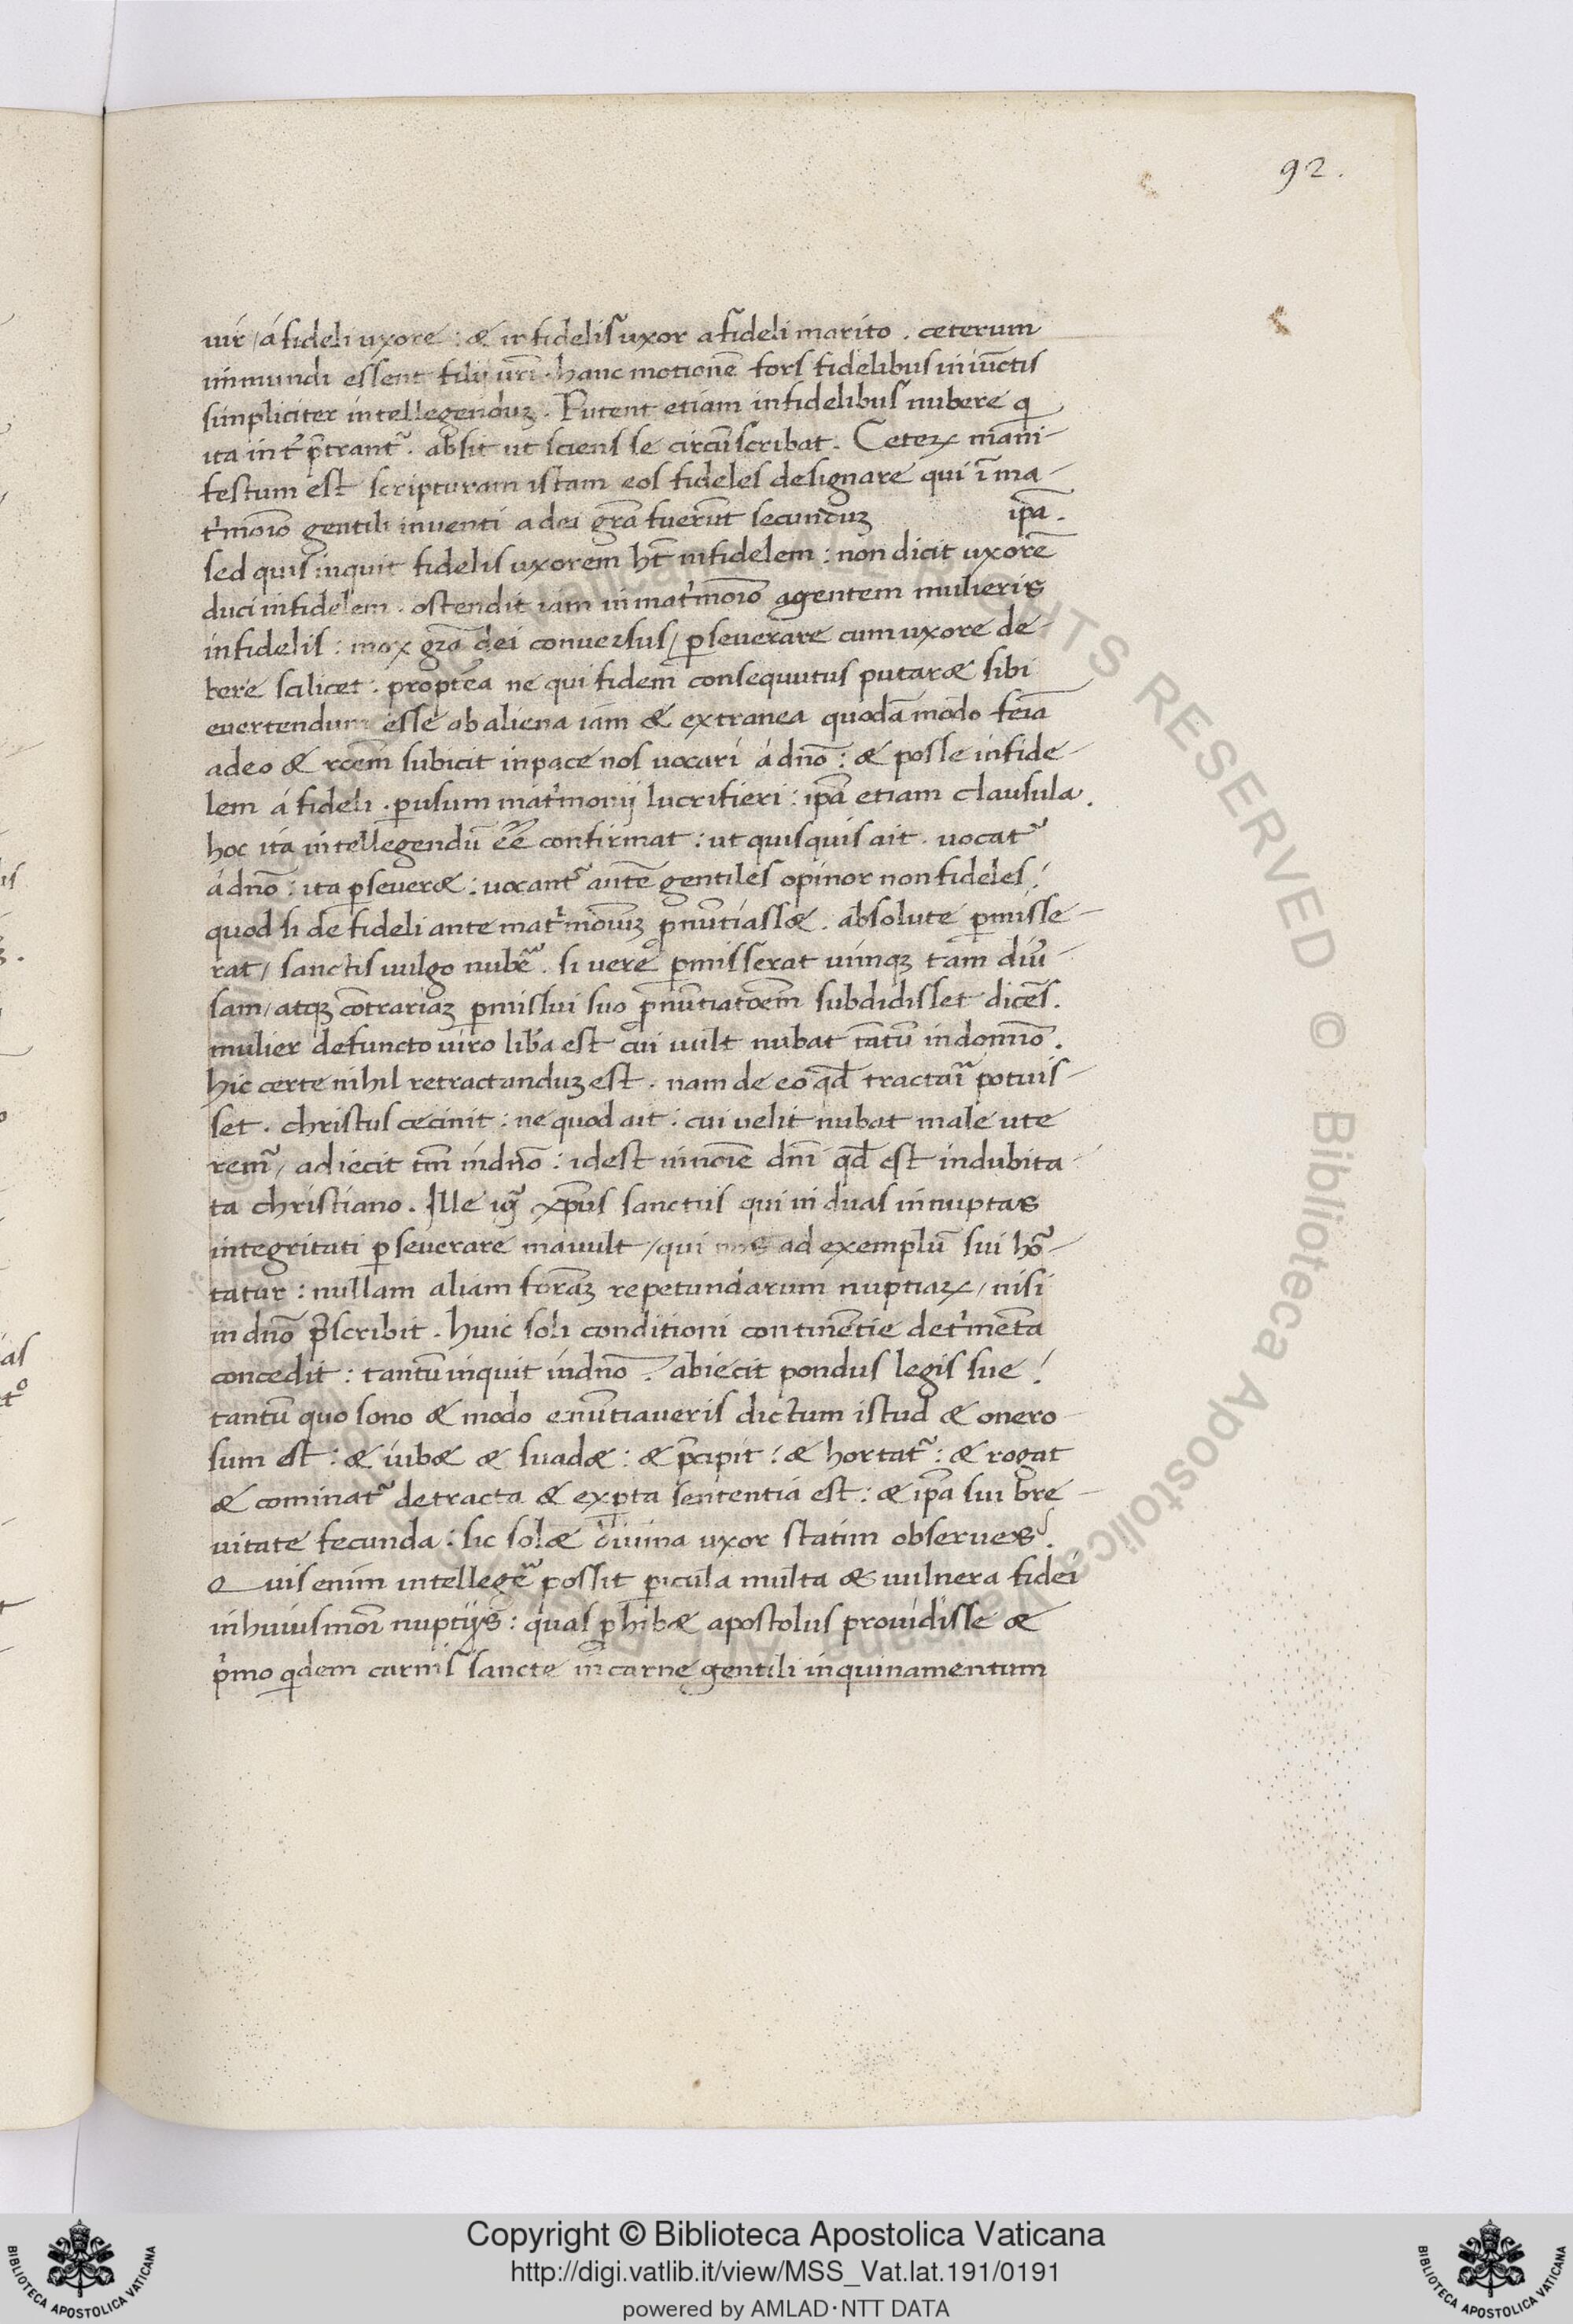 92.
uir / á fideli uxore : & infidelis uxor a fideli marito . ceterum
inmundi essent filij uri᷃ . hanc motionē fors fidelibus iniūctis
simpliciter intellegenduꝫ . Putent etiam infidelibus nubere q
ita int̉ p̄trant᷑ . absit ut sciens se circūscribat . Ceteꝝ mani-
festum est scripturam istam eos fideles designare qui ī ma-
t̉moīo gentili inventi a dei gr̄a fuerūt secunduꝫ ip̄a .
sed quis inquit fidelis uxorem ht̄ infidelem : non dicit uxorē
duci infidelem . ostendit iam in mat̉moīo agentem mulieris
infidelis : mox gr̄a dei conversus / ꝑseverare cum uxore de-
bere scilicet . propt̄ea ne qui fidem consequutus putar& sibi
evertendum esse ab aliena iam & extranea quodā modo feīa
adeo & rōem subicit in pace nos vocari á dn̄o : & posse infide-
lem á fideli . ꝑ usum mat̉monij lucrifieri : ip̄a etiam clausula .
hoc ita intellegendū ēē confirmat : ut quisquis ait . vocat᷑
á dn̄o : ita ꝑsever& : vocant᷑ autē gentiles opinor non fideles !
quod si de fideli ante mat̉moīuꝫ ꝓnūtiass& . absolute ꝑmisse-
rat / sanctis vulgo nub̄e᷑ . si vere ꝑmisserat uimqꝫ tam diū-
sam / atqꝫ cōtrariaꝫ ꝑmissui suo ꝓnūtiatōem subdidisset dicēs .
mulier defuncto viro lib̄a est cui vult nubat tātū in domīo .
hic certe nihil retractanduꝫ est . nam de eo qd̄ tractaīr potuis-
set . christus cecinit : ne quod ait : cui velit nubat male ute
rem᷑ / adiecit tm̄ in dn̄o : id est in noīe dn̄i qd̄ est indubita-
ta christiano . Ille ig᷑ xp̄us sanctus qui in duas innuptas
integritati ꝑseverare mavult / qui nos ad exemplū sui ho᷑-
tatur : nullam aliam forāꝫ repetundarum nuptiaꝝ / nisi
in dn̄o p̄scribit . huic soli conditioni continētie det̉mēta
concedit : tantū inquit in dn̄o . abiecit pondus legis sue !
tantū quo sono & modo enūtiaveris dictum istud & onero-
sum est : & iub& & suad& : & p̄cipit : & hortat᷑ : & rogat
& cominat᷑ detracta & exꝑta sententia est : & ip̄a sui bre-
vitate fecunda : sic sol& divina uxor statim observes .
Quis enim intelleg̃e possit ꝑicula multa & vulnera fidei
in huiusmōi nuptijs : quas ꝓhib& apostolus providisse &
p̉mo qdem carnis sancte in carne gentili inquinamentum
Copyright © Biblioteca Apostolica Vaticana
http://digi.vatlib.it/view/MSS_Vat.lat.191/0191
powered by AMLAD·NTT DATA
BIBLIOTECA APOSTOLICA VATICANA
BIBLIOTECA APOSTOLICA VATICANA